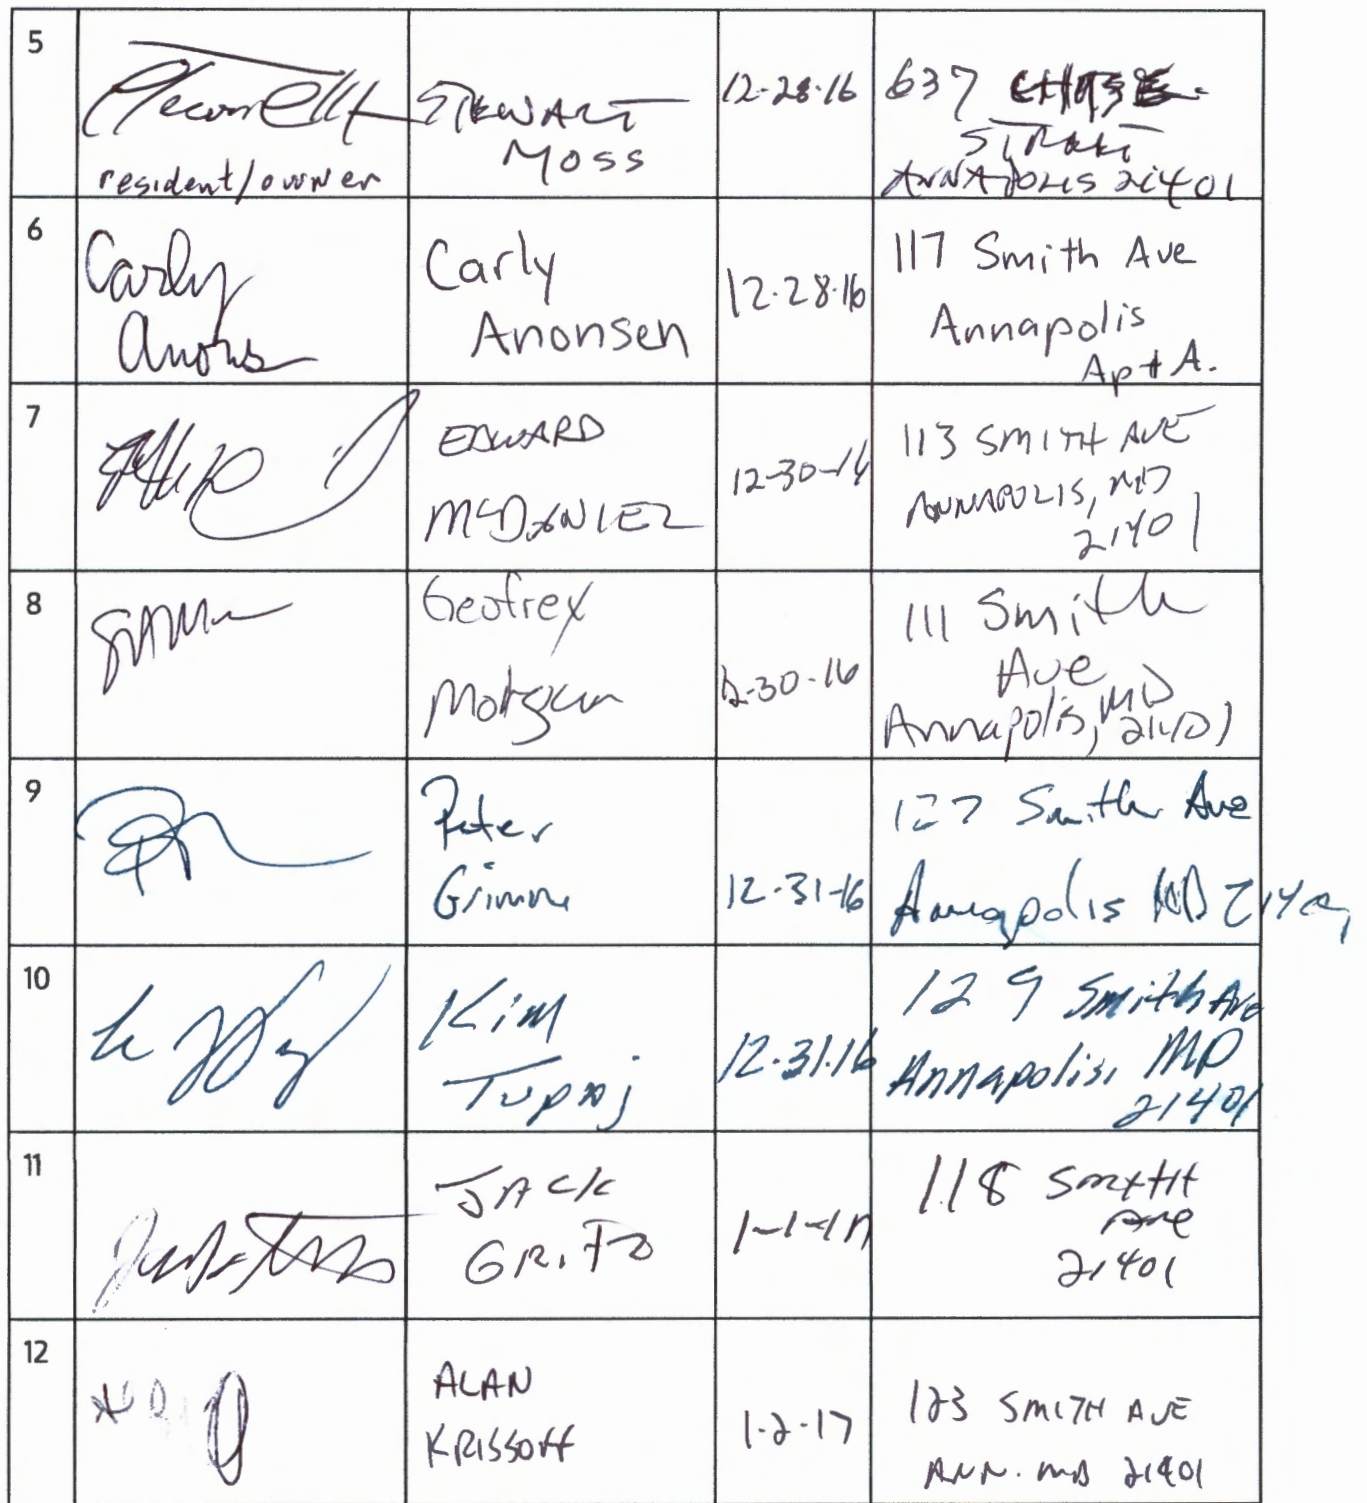 5
STEWART
MOSS
12-28-16
637
STREET
ANNAPOLIS 21401
resident/owner
6
Carly
Carly
Anonsen
12-28-16
117 Smith Ave
Annapolis
Apt A.
7
EDWARD
McDANIEL
12-30-16
113 SMITH AVE
ANNAPOLIS, MD
21401
8
Geofrey
12-30-16
111 Smith
Ave
Annapolis, MD
21401
9
Peter
Grimm
12-31-16
127 Smith Ave
Annapolis MD 21401
10
Kim
Tupaj
12-31-16
129 Smith Ave
Annapolis, MD
21401
11
JACK
12
ALAN
KRISSOFF
1-1-17
118 SMITH
Ave
21401
1-2-17
123 SMITH AVE
ANN. MD 21401